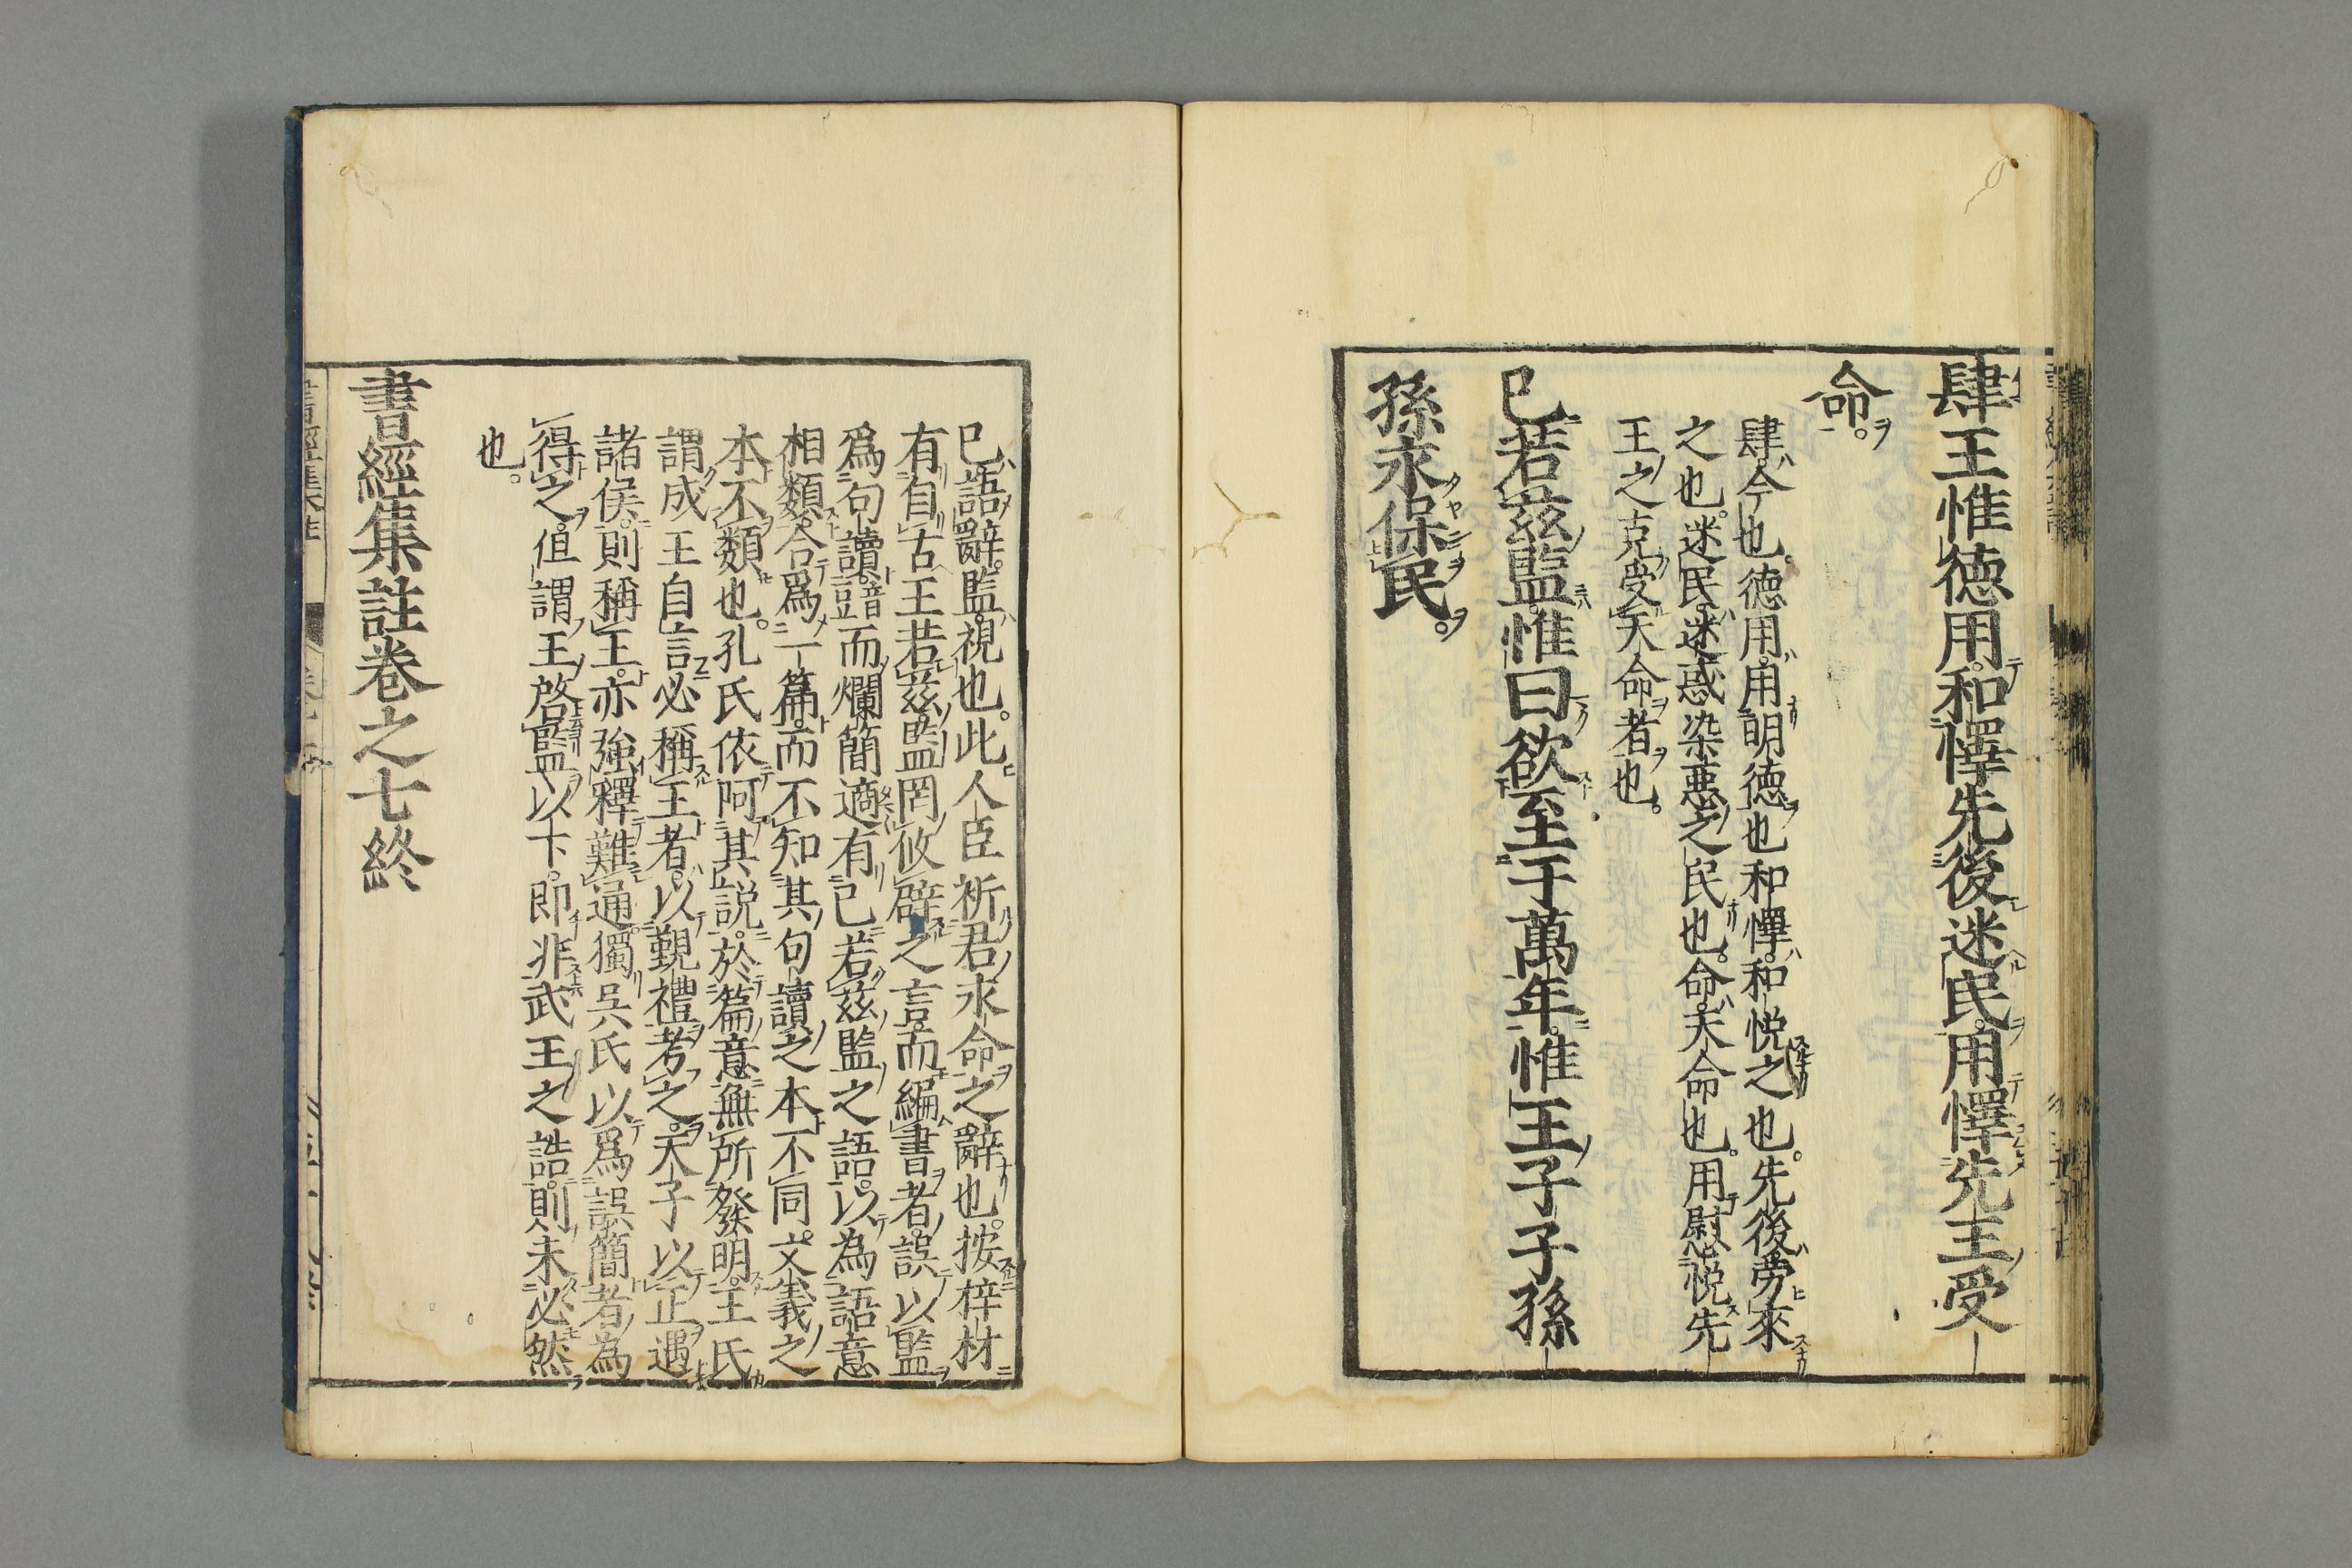 肆王惟德用和懌先後迷民用懌先王受
命
肆今也德用用明德也和懌和悦之也先後勞來
之也迷民迷惑染惡之民也命天命也用慰悦先
王之克受天命者也
已若茲監惟曰欲至于萬年惟王子子孫
孫永保民
已語辭監視也此人臣祈君永命之辭也按梓材
有自古王若茲監罔攸辟之言而編書者誤以監
爲句讀音豆而爛簡適有已若茲監之語以為語意
相類合爲一篇而不知其句讀之本不同文義之
本不類也孔氏依阿其説於篇意無所發明王氏
謂成王自言必稱王者以覲禮考之天子以正遇
諸侯則稱王亦強釋難通獨呉氏以爲誤簡者為
得之但謂王啓監以下即非武王之誥則未必然
也
書經集註卷之七終